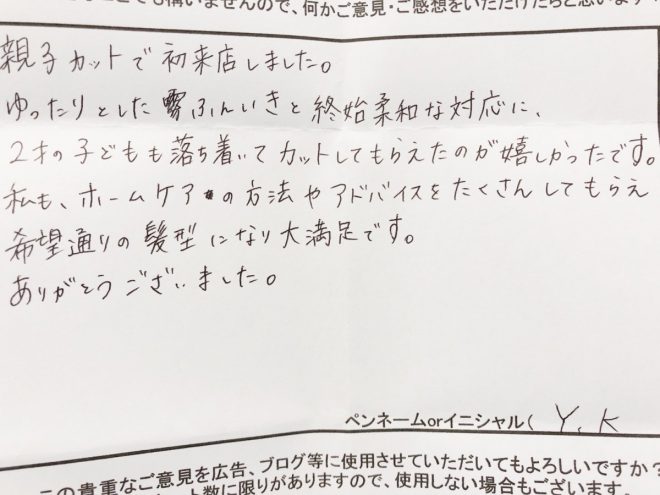 でも構いませんので、何かご意見・ご感想をいただけたらと思います
親子カットで初来店しました。
ゆったりとしたふんいきと終始柔和な対応に、
2才の子どもも落ち着いてカットしてもらえたのが嬉しかったです。
私も、ホームケアの方法やアドバイスをたくさんしてもらえ
希望通りの髪型になり大満足です。
ありがとうございました。
ペンネームorイニシャル( Y.K
この貴重なご意見を広告、ブログ等に使用させていただいてもよろしいですか?
ト数に限りがありますので、使用しない場合もございます。